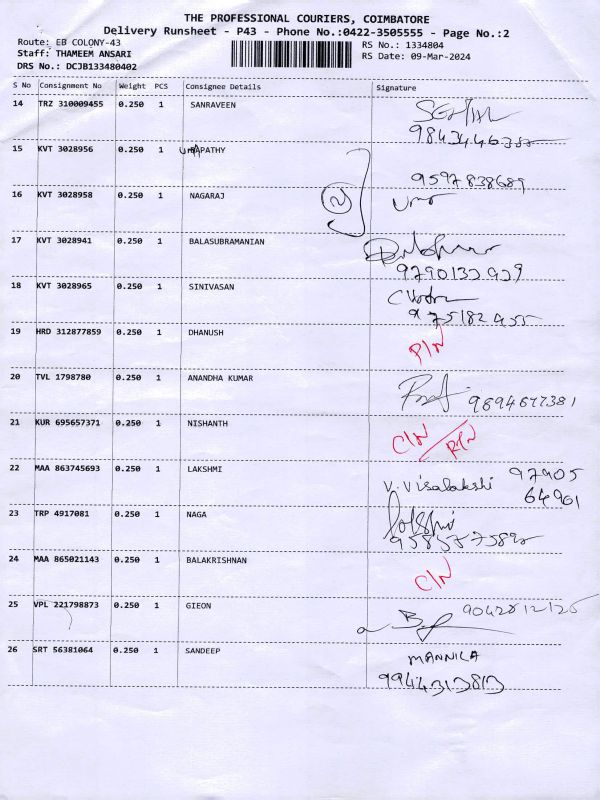 THE PROFESSIONAL COURIERS, COIMBATORE
Delivery Runsheet - P43 - Phone No.:0422-3505555 - Page No.:2
Route: EB COLONY-43
RS No.: 1334804
Staff: THAMEEM ANSARI
RS Date: 09-Mar-2024
DRS No.: DCJB133480402
S No Consignment No Weight PCS Consignee Details Signature
14 TRZ 310009455 0.250 1 SANRAVEEN
15 KVT 3028956 0.250 1 UMAPATHY
9597838689
16 KVT 3028958 0.250 1 NAGARAJ
2
17 KVT 3028941 0.250 1 BALASUBRAMANIAN
18 KVT 3028965 0.250 1 SINIVASAN
19 HRD 312877859 0.250 1 DHANUSH
P/N
20 TVL 1798780 0.250 1 ANANDHA KUMAR
9894677381
21 KUR 695657371 0.250 1 NISHANTH
C/N / P/N
22 MAA 863745693 0.250 1 LAKSHMI
V. Visalakshi 97905
64901
23 TRP 4917081 0.250 1 NAGA
24 MAA 865021143 0.250 1 BALAKRISHNAN
C/N
25 VPL 221798873 0.250 1 GIEON
26 SRT 56381064 0.250 1 SANDEEP
MANNILA
9944313813